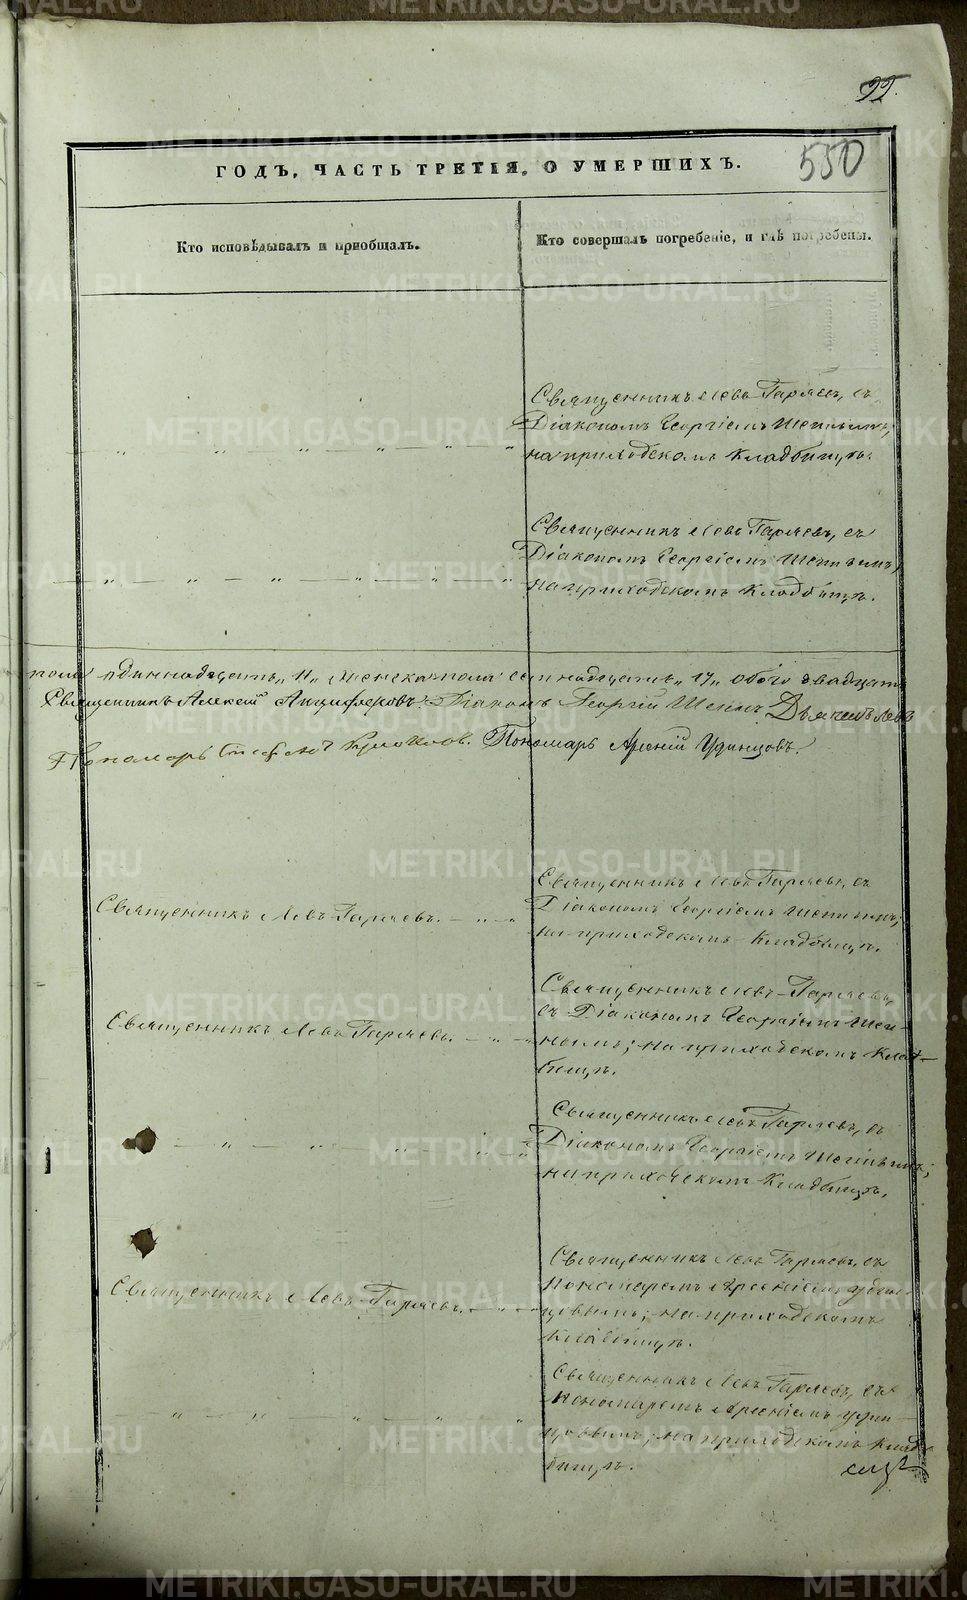 99.
550
ГОДЪ, ЧАСТЬ ТРЕТІЯ, О УМЕРШИХЪ.
Кто исповѣдывалъ и пріобщалъ.
Кто совершалъ погребеніе, и гдѣ погребены.
Священникъ Левъ Гаряевъ, съ
Діакономъ Георгіемъ
на приходскомъ кладбищѣ.
Священникъ Левъ Гаряевъ, съ
Діакономъ Георгіемъ
на приходскомъ кладбищѣ.
пола одиннадцать „11„ женска пола семнадцать „17„ обоего двадцать
Священникъ Алексій Анциферовъ. Діаконъ Георгій Діячекъ Левъ
Пономарь Стефанъ Пономарь Арсеній Удинцовъ.
Священникъ Левъ Гаряевъ.
Священникъ Левъ Гаряевъ, съ
Діакономъ Георгіемъ
на приходскомъ кладбищѣ.
Священникъ Левъ Гаряевъ.
Священникъ Левъ Гаряевъ,
съ Діакономъ Георгіемъ
на приходскомъ клад-
бищѣ.
Священникъ Левъ Гаряевъ, съ
Діакономъ Георгіемъ
на приходскомъ кладбищѣ.
Священникъ Левъ Гаряевъ.
Священникъ Левъ Гаряевъ, съ
Пономаремъ Арсеніемъ Удин-
цовымъ; на приходскомъ
кладбищѣ.
Священникъ Левъ Гаряевъ, съ
Пономаремъ Арсеніемъ Удин-
цовымъ; на приходскомъ клад-
бищѣ.
METRIKI.GASO-URAL.RU